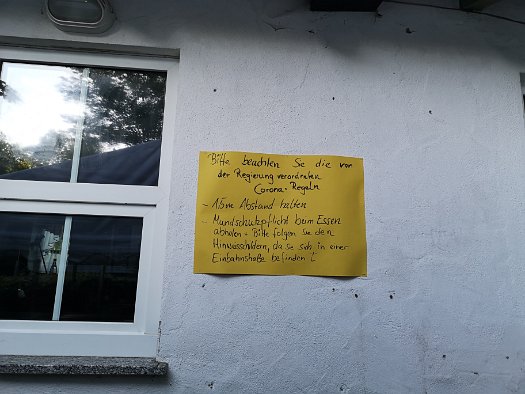 Bitte beachten Sie die von
der Regierung verordneten
Corona-Regeln
- 1,5m Abstand halten
- Mundschutzpflicht beim Essen
abholen - Bitte folgen Sie den
Hinweisschildern, da sie sich in einer
Einbahnstraße befinden !